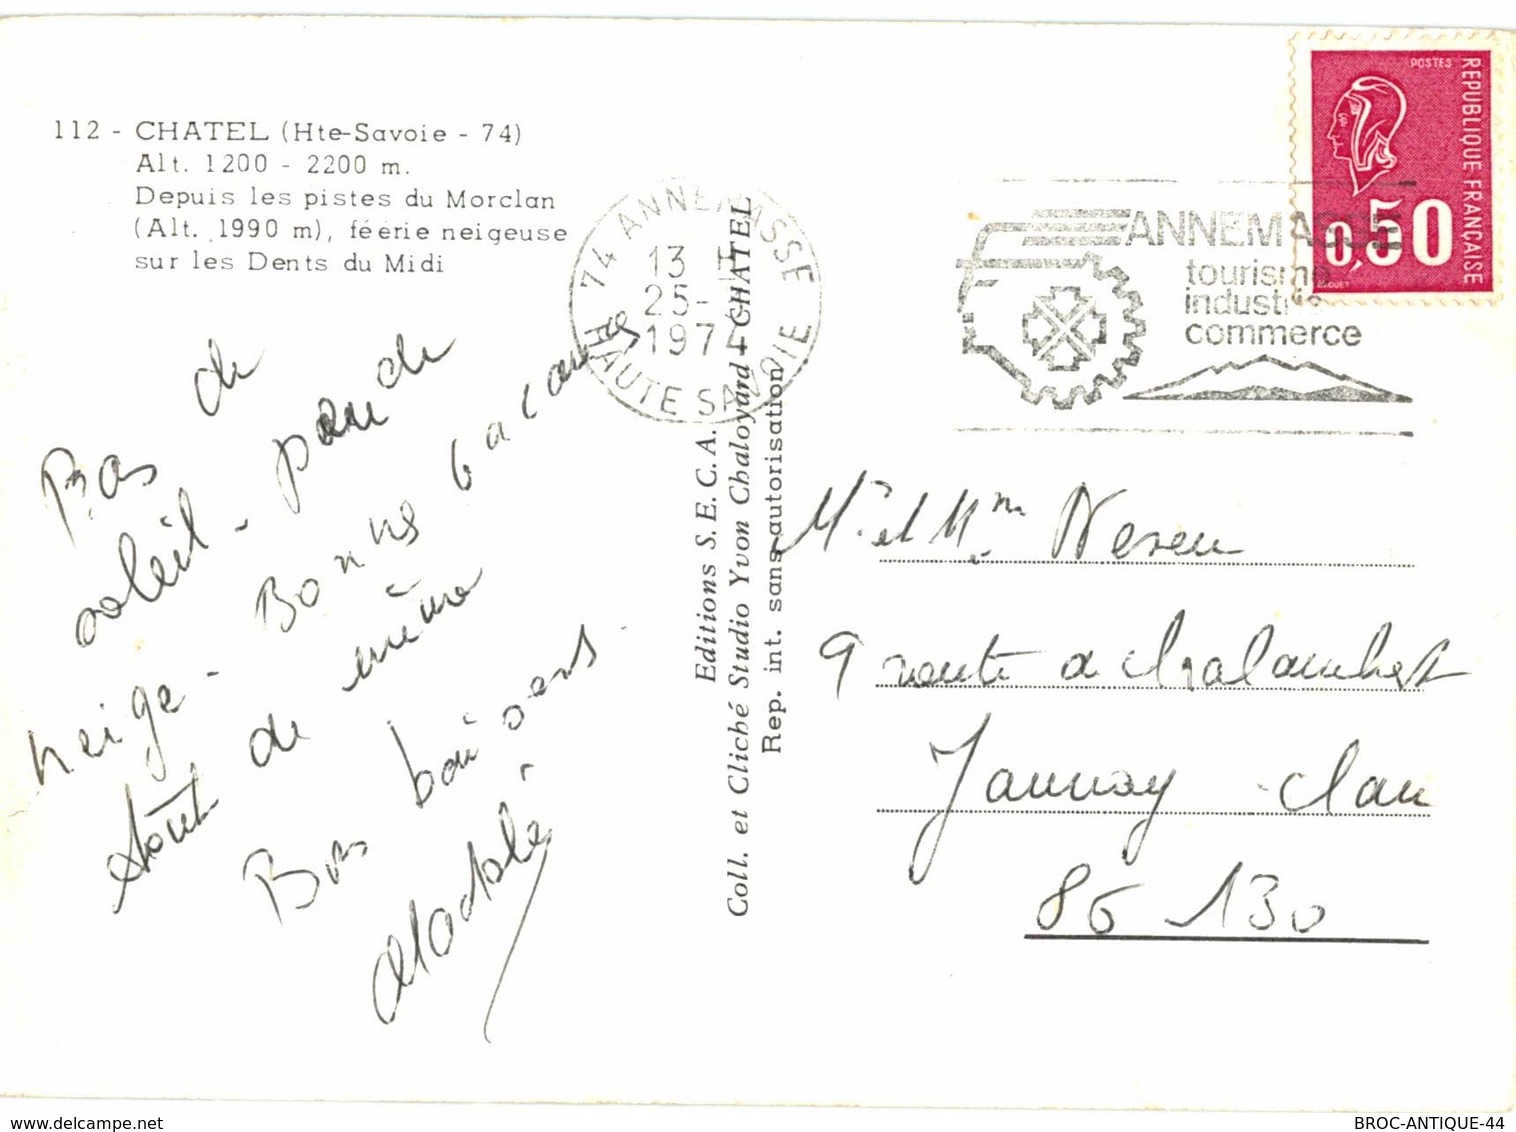 112 - CHATEL (Hte-Savoie - 74)
Alt. 1200 - 2200 m.
Depuis les pistes du Morclan
(Alt. 1990 m), féerie neigeuse
sur les Dents du Midi
74 ANNEMASSE
13 H
25-
1974
HAUTE SAVOIE
ANNEMASSE
tourisme
industrie
commerce
POSTES
REPUBLIQUE FRANÇAISE
0,50
Pas de
soleil - peu de
neige - Bonnes vacances
tout de même
Bons baisers
Editions S.E.C.A.
Coll. et Cliché Studio Yvon Chaloyard - CHATEL
Rep. int. sans autorisation
Mr et Mme
9 route de
Jaunay-Clan
86130
BROC-ANTIQUE-44
https://www.delcampe.net